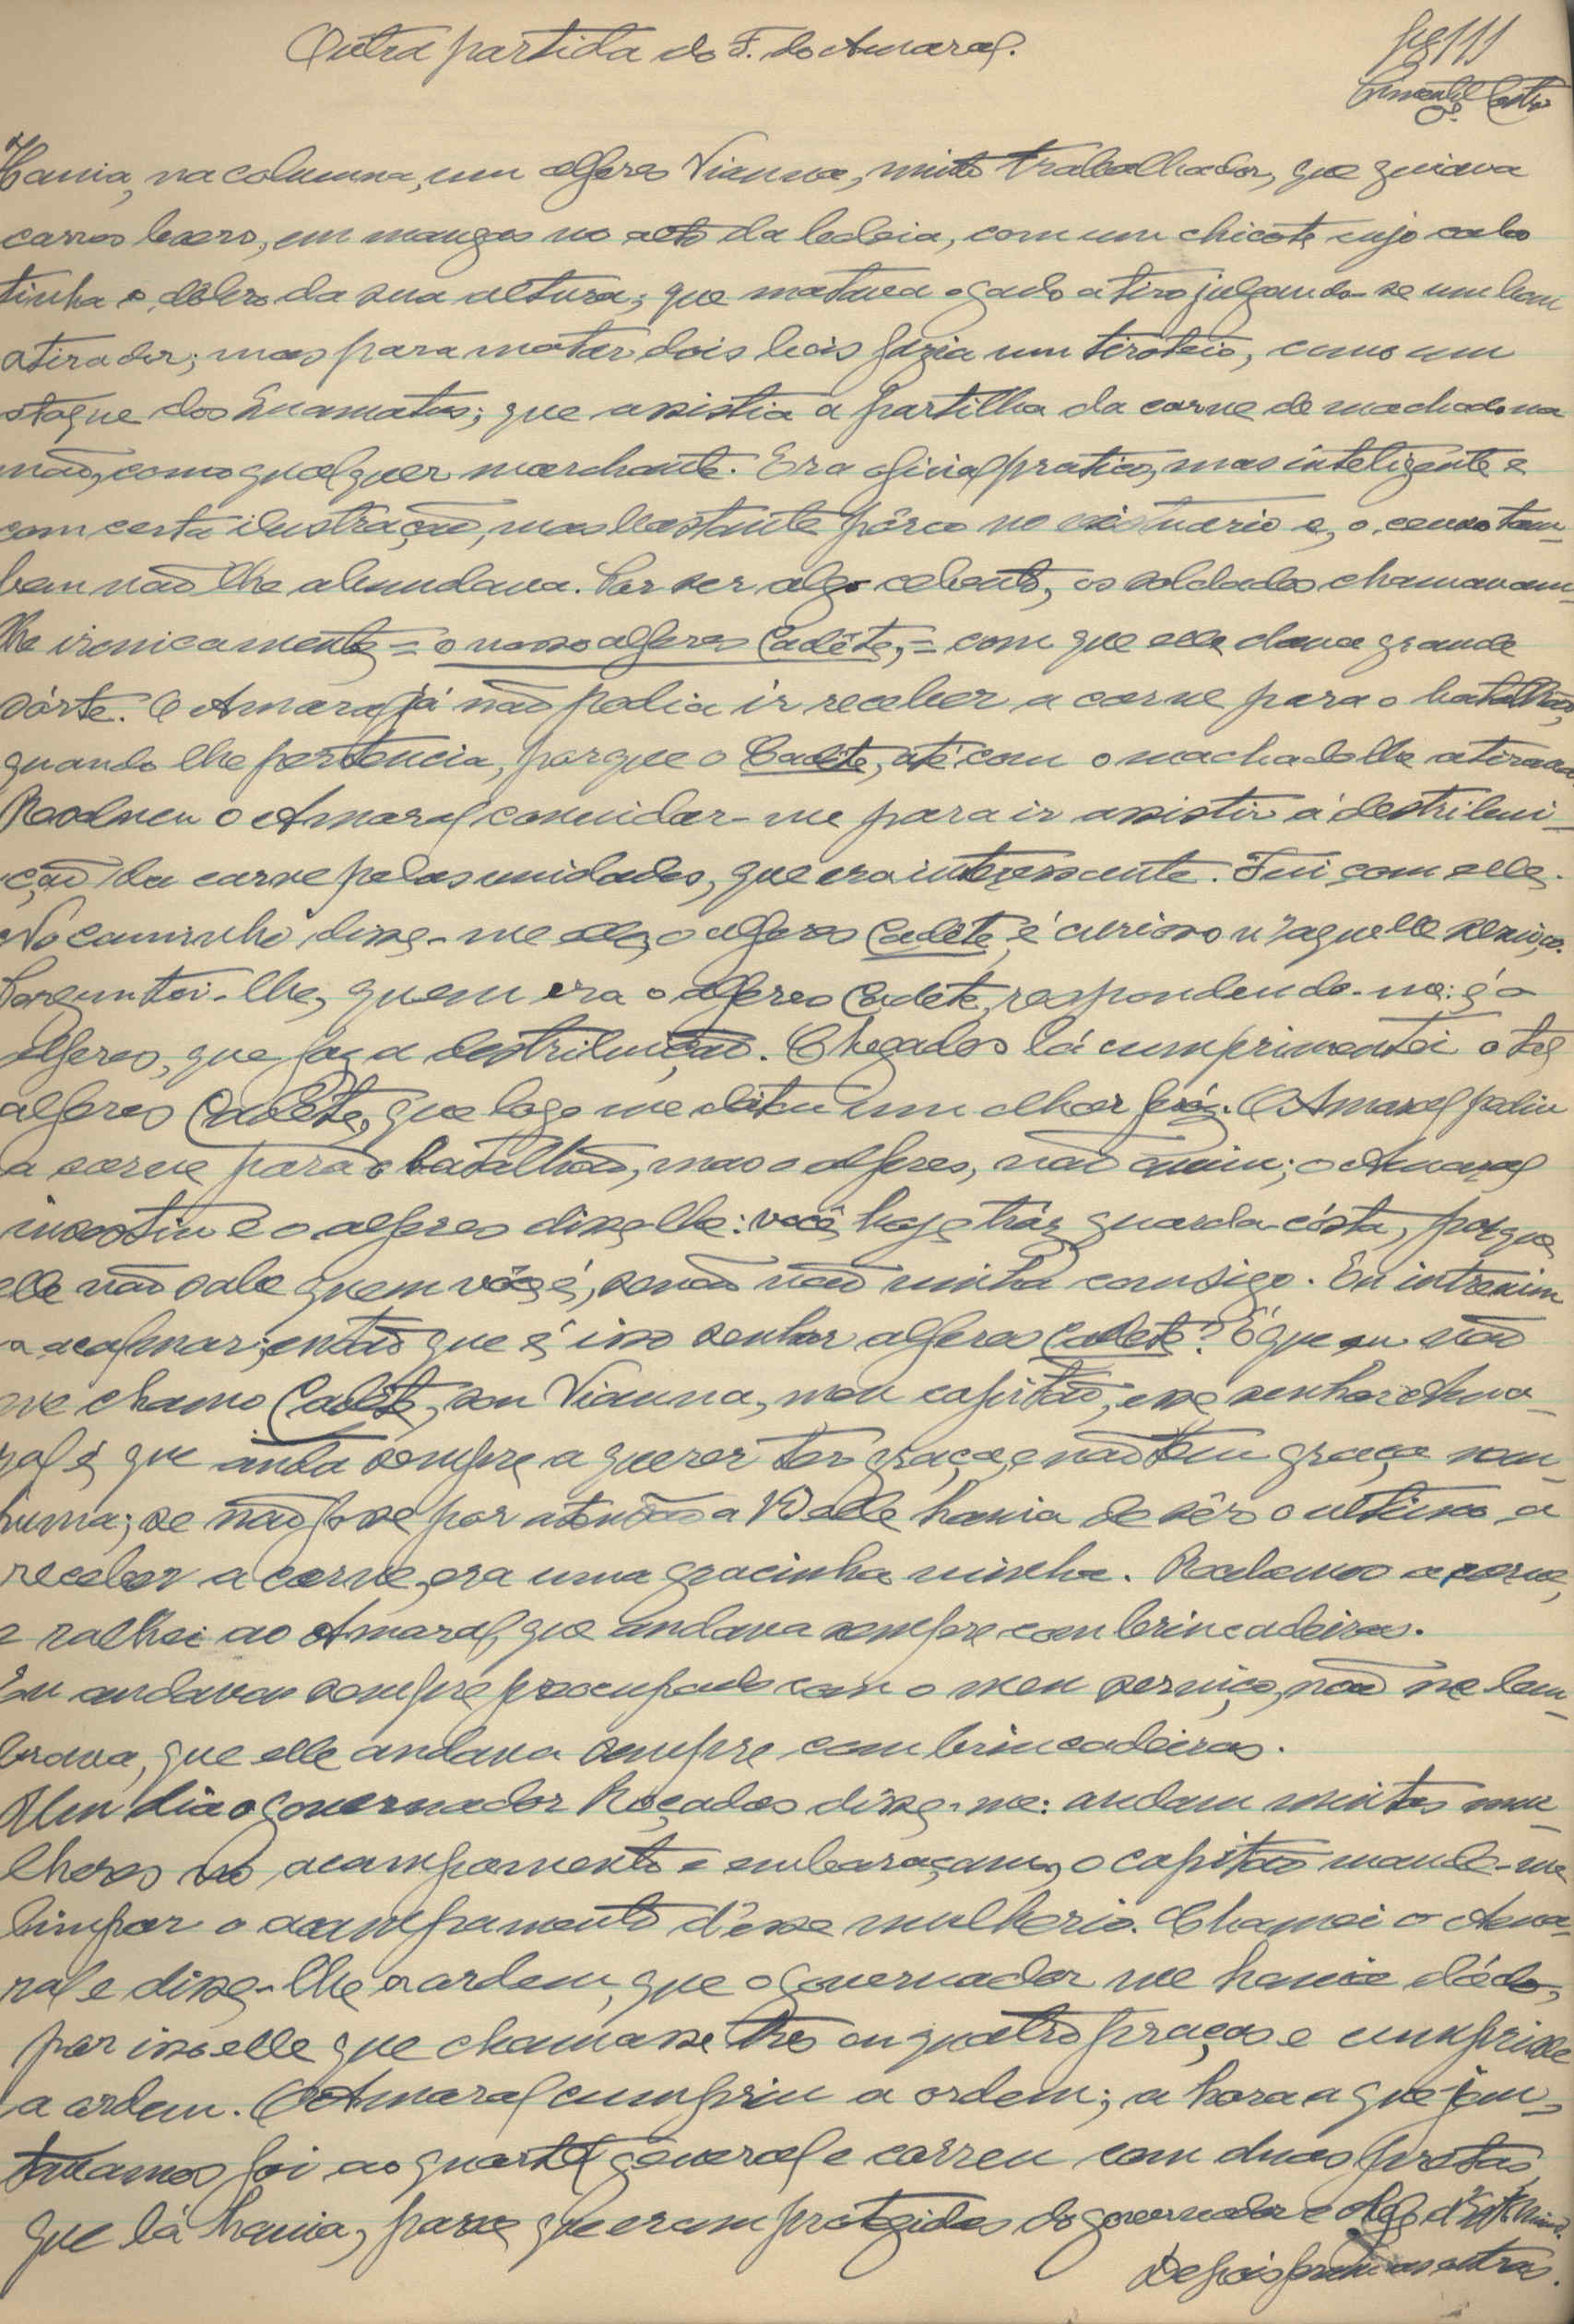 Outra partida do F. do Amaral.
Pimentel Castro
Havia, na columna, um alferes Vianna, muito trabalhador, que guiava
carros boers, em mangas no alto da boleia, com um chicote cujo cabo
tinha o dobro da sua altura; que matava o gado a tiro julgando-se um bom
atirador; mas para matar dois bois fazia um tiroteio, como um
ataque dos Cuamatos; que assistia a partilha da carne de machado na
mão, como qualquer marchante. Era oficial pratico, mas inteligente e
com certa ilustração, mas bastante pôrco no vistuario e, o censo tam-
bem não lhe abundava. Por ser algo cebento, os soldados chamavam-
lhe ironicamente = o nosso alferes Cadête, = com que elle dava grande
sórte. O Amaral já não podia ir receber a carne para o batalhão,
quando lhe pertencia, porque o Cadête, até com o machado lhe atirava.
Resolveu o Amaral convidar-me para ir assistir á destribui-
ção da carne pelas unidades, que era interessante. Fui com elle.
No caminho disse-me elle, o alferes Cadête é curioso n'aquelle serviço.
Preguntei-lhe, quem era o alferes Cadete, respondendo-me: é o
alferes, que faz a destribuição. Chegados lá cumprimentei o tal
alferes Cadête, que logo me deitou um olhar feróz. O Amaral pediu
a carne para o batalhão, mas o alferes, não ouviu; o Amaral
insestiu e o alferes disse lhe: você hoje tráz guarda-cósta, porque
elle não sabe quem você é, senão não vinha comsigo. Eu intrevim
a acalmar; então que é isso senhor alferes Cadete? É que eu não
me chamo Cadête, sou Vianna, meu capitão, esse senhor Ama-
ral é que anda sempre a querer ter graça, e não tem graça nem-
huma; se não fosse por atenção a V. elle havia de sêr o ultimo a
receber a carne, era uma gracinha minha. Recebemos a carne,
e ralhei ao Amaral, que andava sempre com brincadeiras.
Eu andava sempre preocupado com o meu serviço, não me lem-
brava, que elle andava sempre com brincadeiras.
Um dia o governador Roçadas disse-me: andam muitas mu-
lheres no acampamento e embaraçam, o capitão mande-me
limpar o acampamento d'esse mulherio. Chamei o Ama-
ral e disse-lhe a ordem, que o governador me havia dádo,
por isso elle que chamasse tres ou quatro praças e cumprisse
a ordem. O Amaral cumpriu a ordem; a hora a que jan-
tavamos foi ao quartel general e correu com duas pretas,
que lá havia, parece que eram protegidas do governador e
Depois foram as outras.